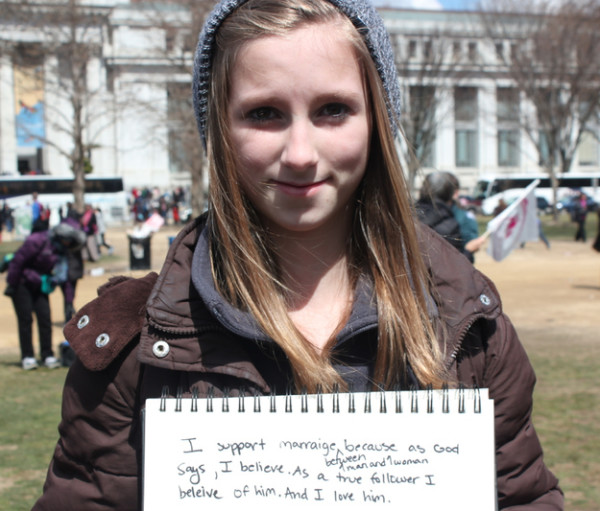 I support marraige, because as God
between
says, I believe. As ^man and^woman a true follower I
beleive of him. And I love him.